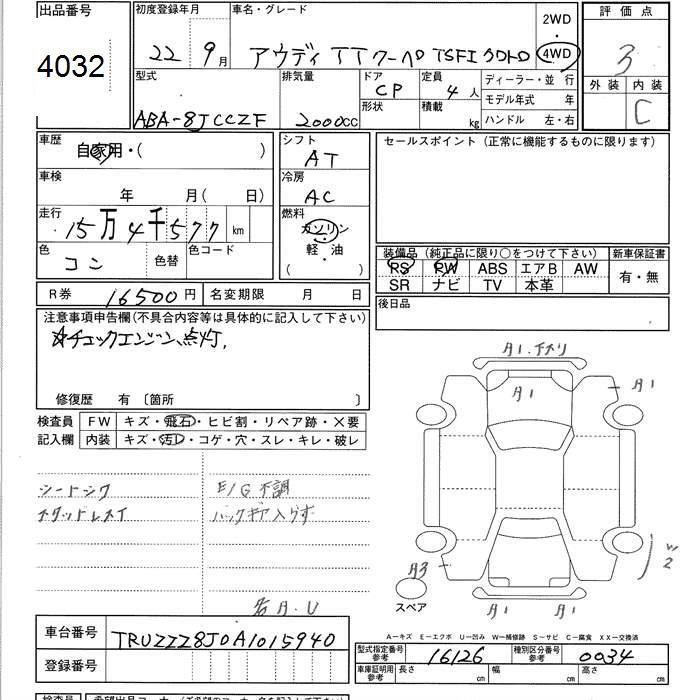 出品番号
4032
初度登録年月
22 9月
車名・グレード
アウディ TTクーペ TSFI クワトロ
2WD
・
4WD
評価点
3
外装 内装
C
型式
ABA-8JCCZF
排気量
2000cc
ドア
CP
形状
定員
4人
積載
kg
ディーラー・並 行
モデル年式 年
ハンドル 左・右
車歴
自家用・( )
車検
年 月(日)
走行
15万4千577km
色
コン
色替
色コード
シフト
AT
冷房
AC
燃料
ガソリン
軽・油
( ・ )
セールスポイント(正常に機能するものに限ります)
装備品(純正品に限り○をつけて下さい)
RS RW ABS エアB AW
SR ナビ TV 本革
新車保証書
有・無
R券 16500円
名変期限 月 日
後日品
注意事項申告欄(不具合内容等は具体的に記入して下さい)
☆チェックエンジン、点灯,
修復歴 有〔箇所 〕
検査員
記入欄
FW キズ・飛石・ヒビ割・リペア跡・×要
内装 キズ・汚レ・コゲ・穴・スレ・キレ・破レ
E/G不調
バックギア入らず
A1
A1
A1
A3
W2
A1 A1
スペア
A-キズ E-エクボ U-凹み W-補修跡 S-サビ C-腐食 XX-交換済
車台番号
TRUZZZ8J0A1015940
登録番号
型式指定番号
参考
16126
種別区分番号
参考
0034
車庫証明用
参考
長さ
幅
高さ